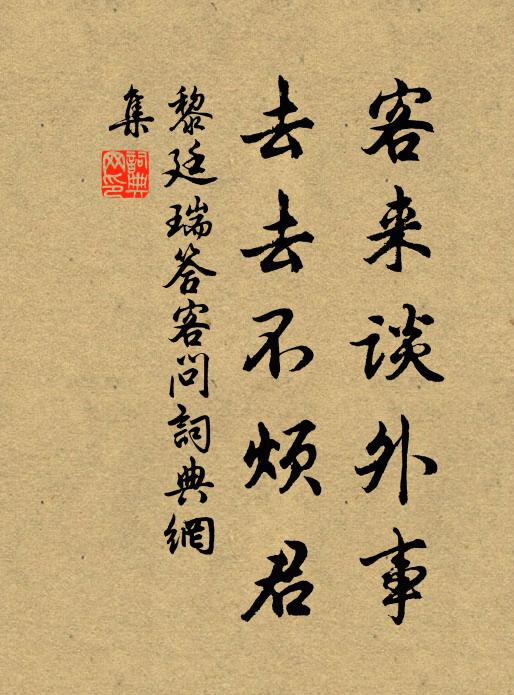 客来谈外事
去去不烦君
黎廷瑞答客问詞典網
集
詞典
网印